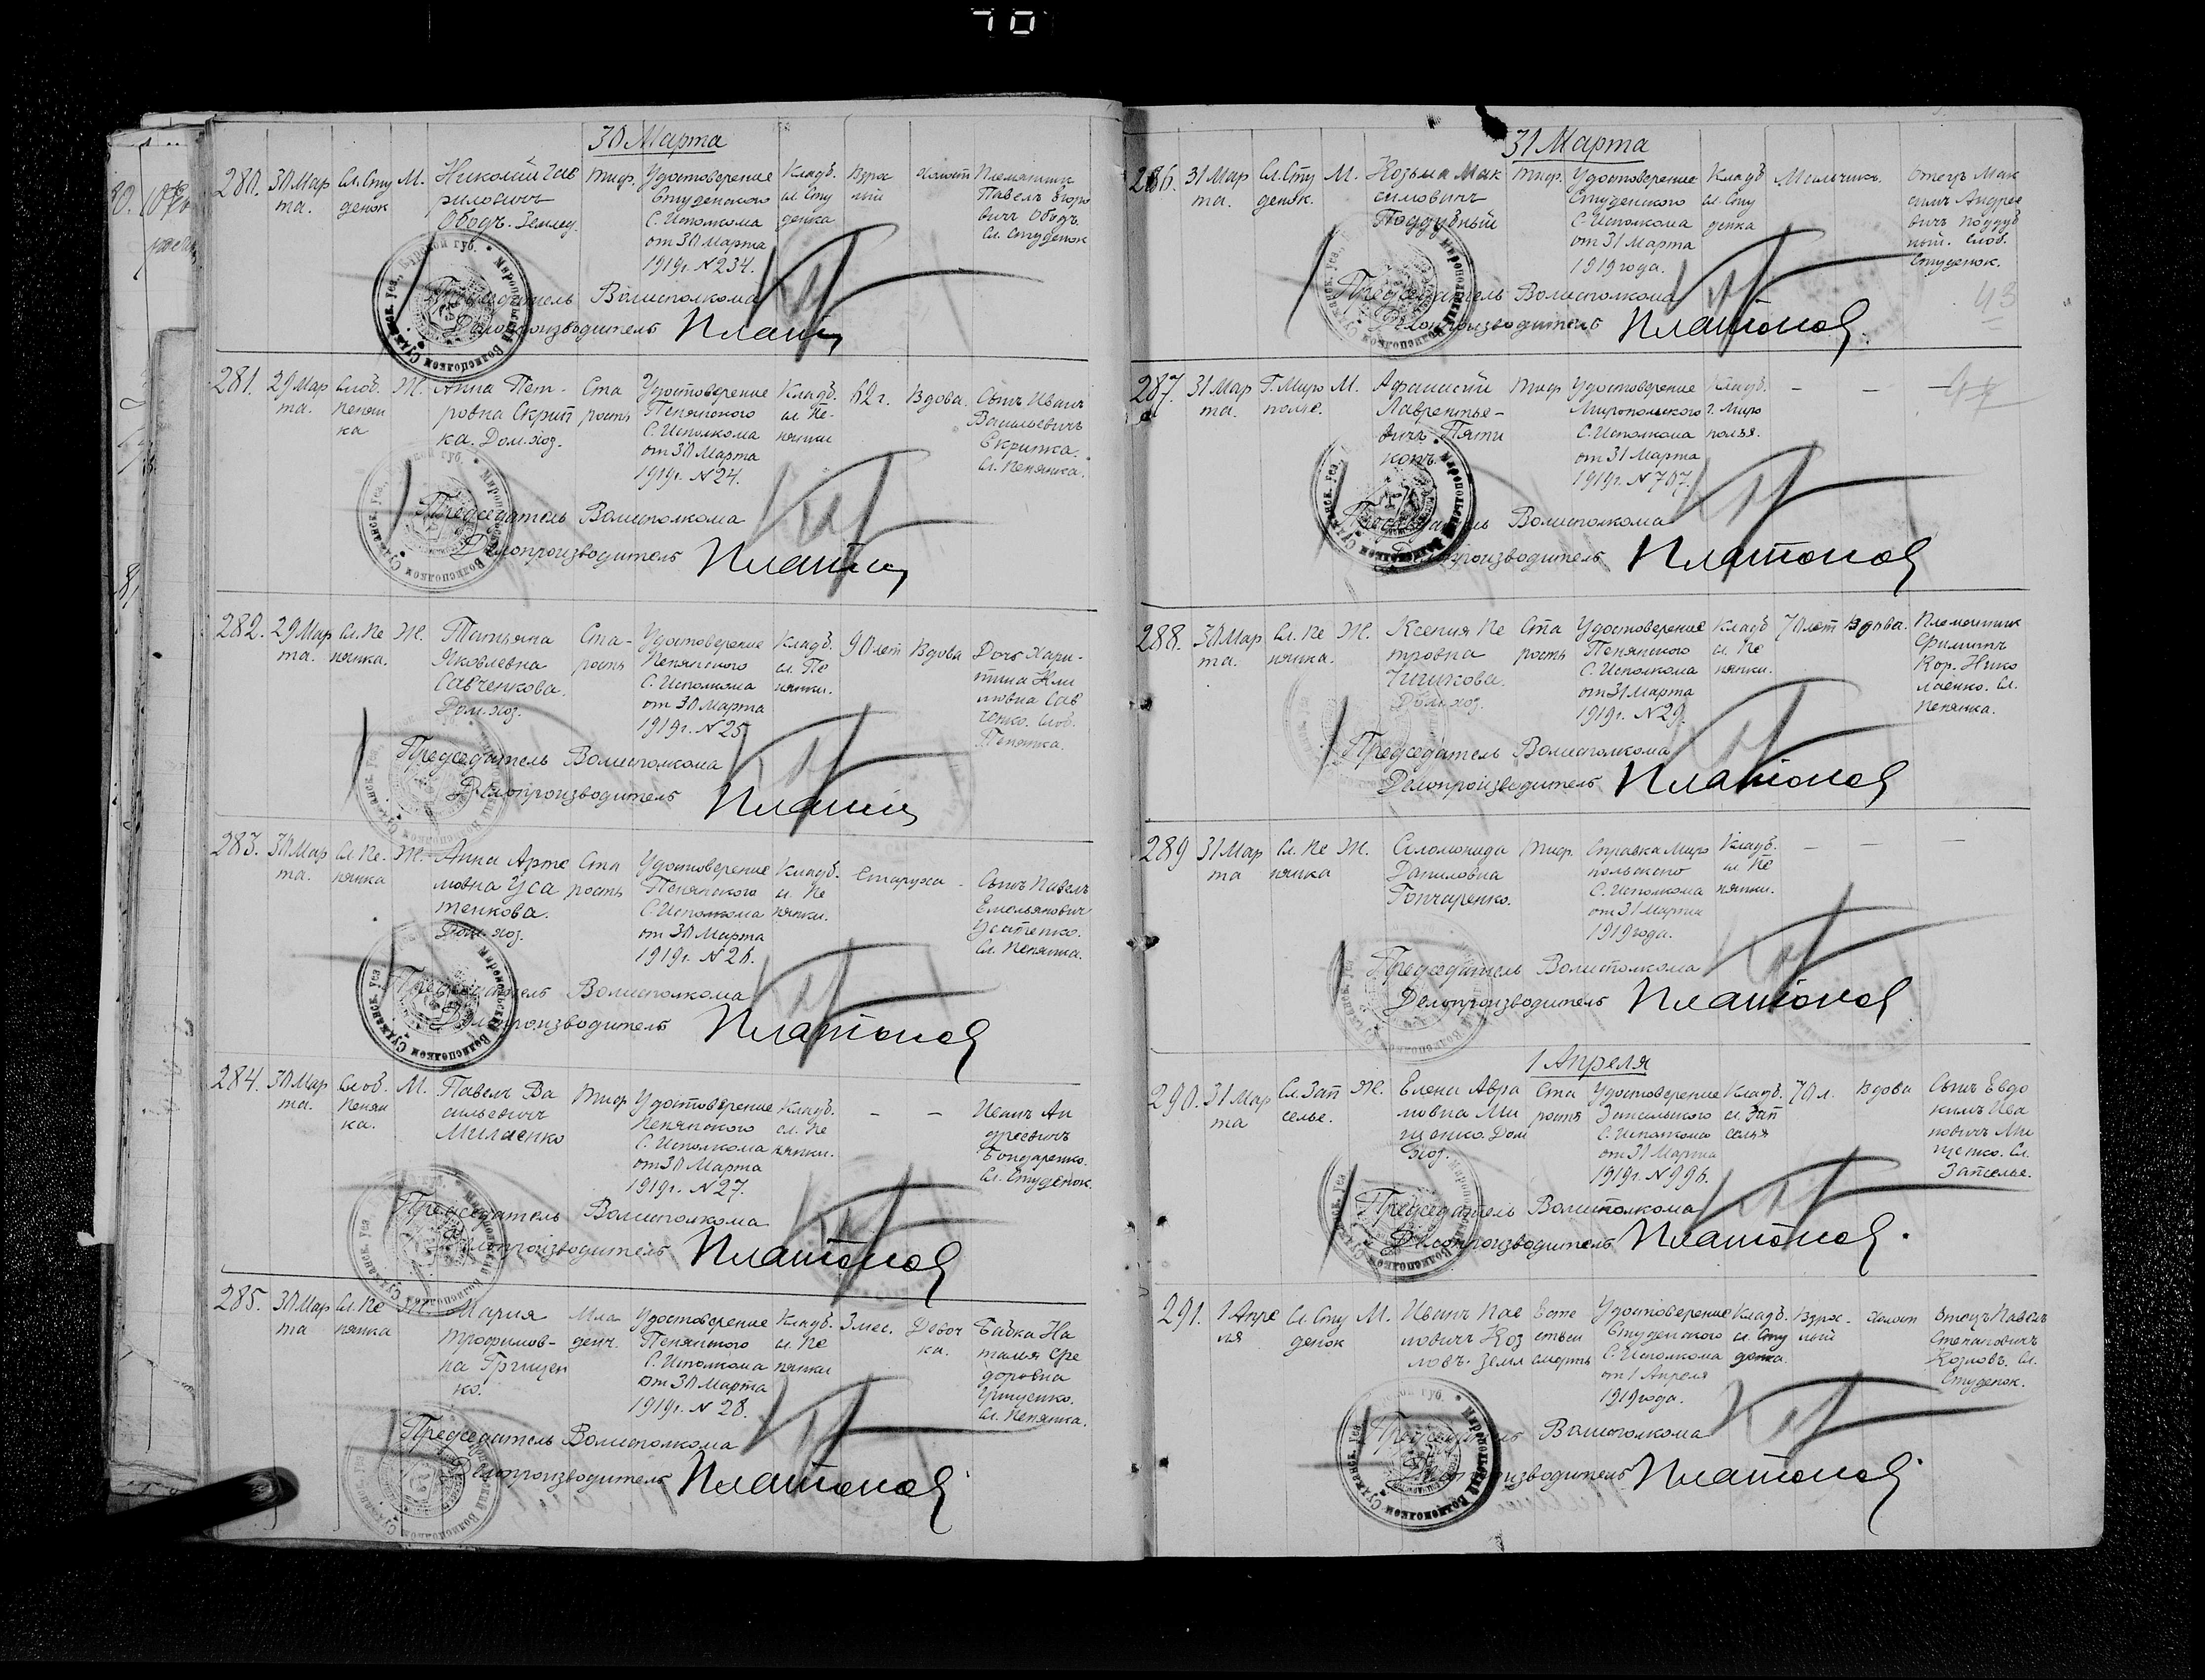 70
30 Марта
280. 30 Мар та. Сл. Сту денок М. Николай Гав риловичъ Ободъ. Землед. тиф. Удостоверение Студенского С. Исполкома от 30 Марта 1919г. N 234. Кладб. сл. Сту денка Взрос лый Холост Племянник Павелъ Сл. Студенок
Председатель Волисполкома
Делопроизводитель
281. 29 Мар та. Слоб. Пенян ка Ж. Анна Пет- ровна Скрип ка. Дом. хоз. Ста рость Удостоверение Пенянского С. Исполкома от 30 Марта 1919г. N 24. Кладб. сл. Пе- нянки 62 г. Вдова. Сынъ Иванъ Васильевичъ Скрипка. Сл. Пенянка.
Председатель Волисполкома
Делопроизводитель
282. 29 Мар та. Сл. Пе нянка. Ж. Татьяна Яковлевна Савченкова. Дом. хоз. Ста- рость Удостоверение Пенянского С. Исполкома от 30 Марта 1919г. N 25 Кладб. сл. Пе нянки. 90 лет Вдова Дочь Хари- тина Кли мовна Сав ченко. Слоб. Пенянка.
Председатель Волисполкома
Делопроизводитель
283. 30 Мар та. Сл. Пе. нянка Ж. Анна Арте мовна Уса тенкова. Дом. хоз. Ста рость Удостоверение Пенянского С. Исполкома от 30 Марта 1919г. N 26. Кладб. сл. Пе нянки. Старуха. Сынъ Павелъ Емельянович Усатенко. Сл. Пенянка.
Председатель Волисполкома
Делопроизводитель Платонов
284. 30 Мар та. Слоб. Пенян ка. М. Павелъ Ва сильевичъ Милаенко тиф Удостоверение Пенянского С. Исполкома от 30 Марта 1919г. N 27. Кладб. сл. Пе нянки. – – Иванъ Ан дреевичъ Бондаренко. Сл. Студенок.
Председатель Волисполкома
Делопроизводитель Платонов
285. 30 Мар та Сл. Пе нянка Ж. Мария Трофимов- на Грицен ко. Мла денч. Удостоверение Пенянского С. Исполкома от 30 Марта 1919г. N 28. Кладб. сл. Пе нянки 3 мес. Девоч ка. Бабка На талья Фе доровна Гриценко. Сл. Пенянка.
Председатель Волисполкома
Делопроизводитель Платонов
31 Марта
286. 31 Мар та. Сл. Сту денок. М. Козьма Мак симовичъ Поддубный тиф. Удостоверение Студенского С. Исполкома от 31 Марта 1919 года. Кладб сл. Сту денка Мальчикъ. Отецъ Мак симъ Андрее вичъ Поддуб ный. Слоб. Студенок.
43
Председатель Волисполкома
Делопроизводитель Платонов
287. 31 Мар та. Г. Миро полье. М. Афанасий Лаврентье- вичъ Пяти копъ. тиф Удостоверение Миропольского С. Исполкома от 31 Марта 1919г. N 707. Кладб. г. Миро полья. – – –
44
Председатель Волисполкома
Делопроизводитель Платонов
288. 30 Мар та. Сл. Пе нянка. Ж. Ксения Пе тровна Чичикова. Дом. хоз. Ста рость Удостоверение Пенянского С. Исполкома от 31 Марта 1919г. N 29. Кладб сл. Пе нянки. 70 лет Вдова. Племянник Филиппъ Кор. Нико лаенко. Сл. Пенянка.
Председатель Волисполкома
Делопроизводитель Платонов
289 31 Мар та Сл. Пе нянка Ж. Соломонида Даниловна Гончаренко. тиф. Справка Миро польского С. Исполкома от 31 Марта 1919 года. Кладб. сл. Пе нянки. – – –
Председатель Волисполкома
Делопроизводитель Платонов
1 Апреля
290. 31 Мар та Сл. Зап селье. Ж. Елена Авра мовна Ми щенко. Дом хоз. Ста рость Удостоверение Запсельского С. Исполкома от 31 Марта 1919г. N 996. Кладб. сл. Зап селья 70 л. Вдова Сынъ Евдо кимъ Ива новичъ Ми щенко. Сл. Запселье.
Председатель Волисполкома
Делопроизводитель Платонов.
291. 1 Апре ля Сл. Сту денок М. Иванъ Пав ловичъ Коз ловъ. Земл Есте ствен смерть Удостоверение Студенского С. Исполкома от 1 Апреля 1919 года. Кладб. сл. Сту денка. Взрос- лый Холост Отецъ Павелъ Степановичъ Козловъ. Сл. Студенок.
Председатель Волисполкома
Делопроизводитель Платонов